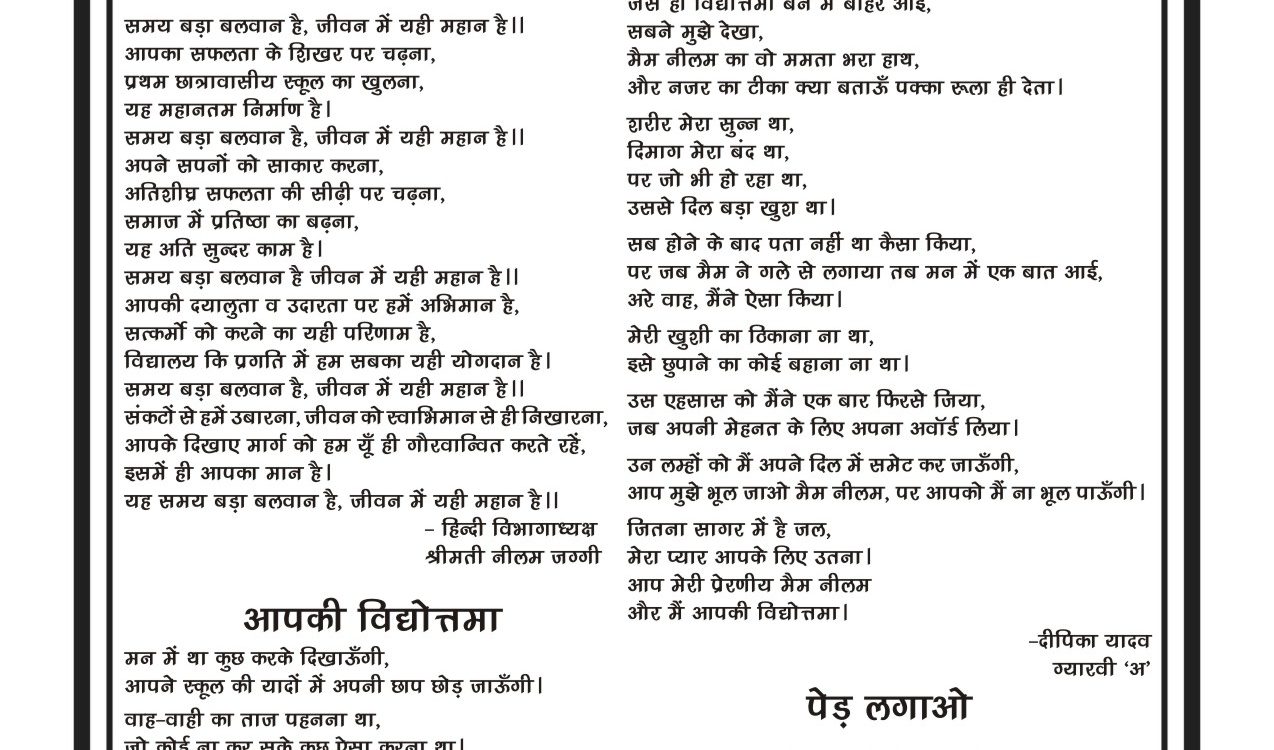 समय बड़ा बलवान है, जीवन में यही महान है।।
आपका सफलता के शिखर पर चढ़ना,
प्रथम छात्रावासीय स्कूल का खुलना,
यह महानतम निर्माण है।
समय बड़ा बलवान है, जीवन में यही महान है।।
अपने सपनों को साकार करना,
अतिशीघ्र सफलता की सीढ़ी पर चढ़ना,
समाज में प्रतिष्ठा का बढ़ना,
यह अति सुन्दर काम है।
समय बड़ा बलवान है जीवन में यही महान है।।
आपकी दयालुता व उदारता पर हमें अभिमान है,
सत्कर्मो को करने का यही परिणाम है,
विद्यालय कि प्रगति में हम सबका यही योगदान है।
समय बड़ा बलवान है, जीवन में यही महान है।।
संकटों से हमें उबारना, जीवन को स्वाभिमान से ही निखारना,
आपके दिखाए मार्ग को हम यूँ ही गौरवान्वित करते रहें,
इसमें ही आपका मान है।
यह समय बड़ा बलवान है, जीवन में यही महान है।।
– हिन्दी विभागाध्यक्ष
श्रीमती नीलम जग्गी
आपकी विद्योत्तमा
मन में था कुछ करके दिखाऊँगी,
आपने स्कूल की यादों में अपनी छाप छोड़ जाऊँगी।
वाह–वाही का ताज पहनना था,
जो कोई ना कर सके कुछ ऐसा करना था।
जैसे ही विद्योत्तमा बन मैं बाहर आई,
सबने मुझे देखा,
मैम नीलम का वो ममता भरा हाथ,
और नजर का टीका क्या बताऊँ पक्का रूला ही देता।
शरीर मेरा सुन्न था,
दिमाग मेरा बंद था,
पर जो भी हो रहा था,
उससे दिल बड़ा खुश था।
सब होने के बाद पता नहीं था कैसा किया,
पर जब मैम ने गले से लगाया तब मन में एक बात आई,
अरे वाह, मैंने ऐसा किया।
मेरी खुशी का ठिकाना ना था,
इसे छुपाने का कोई बहाना ना था।
उस एहसास को मैंने एक बार फिरसे जिया,
जब अपनी मेहनत के लिए अपना अवॉर्ड लिया।
उन लम्हों को मैं अपने दिल में समेट कर जाऊँगी,
आप मुझे भूल जाओ मैम नीलम, पर आपको मैं ना भूल पाऊँगी।
जितना सागर में है जल,
मेरा प्यार आपके लिए उतना।
आप मेरी प्रेरणीय मैम नीलम
और मैं आपकी विद्योत्तमा।
–दीपिका यादव
ग्यारवी ‘अ’
पेड़ लगाओ